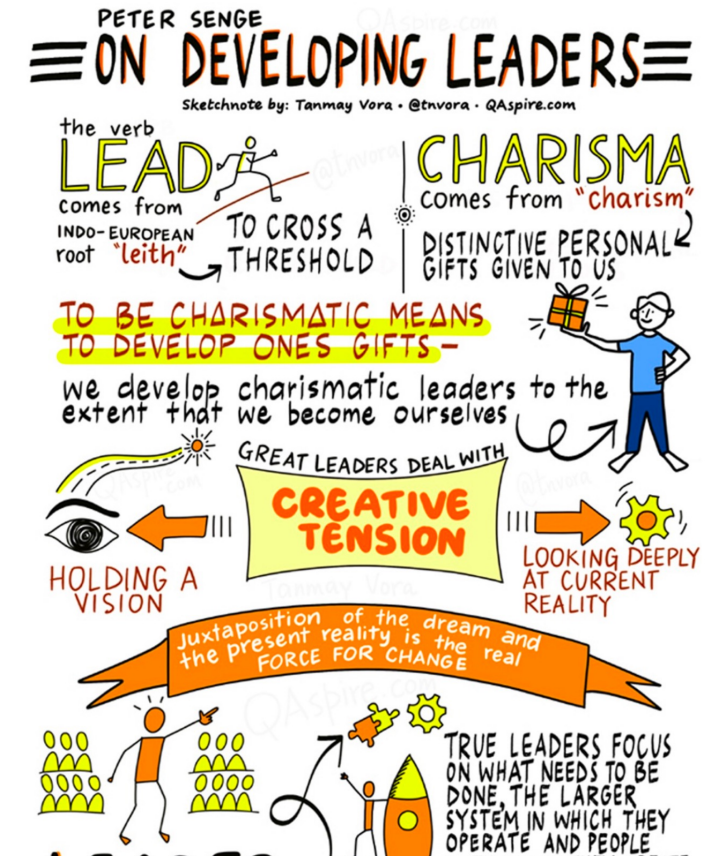 PETER SENGE
ON DEVELOPING LEADERS
Sketchnote by: Tanmay Vora • @tnvora • QAspire.com
the verb
LEAD
comes from
INDO-EUROPEAN
root "leith"
TO CROSS A
THRESHOLD
CHARISMA
comes from "charism"
DISTINCTIVE PERSONAL
GIFTS GIVEN TO US
TO BE CHARISMATIC MEANS
TO DEVELOP ONES GIFTS –
we develop charismatic leaders to the
extent that we become ourselves
GREAT LEADERS DEAL WITH
CREATIVE
TENSION
HOLDING A
VISION
LOOKING DEEPLY
AT CURRENT
REALITY
Juxtaposition of the dream and
the present reality is the real
FORCE FOR CHANGE
TRUE LEADERS FOCUS
ON WHAT NEEDS TO BE
DONE, THE LARGER
SYSTEM IN WHICH THEY
OPERATE AND PEOPLE
QAspire.com
@tnvora
QAspire.com
@tnvora
Tanmay Vora
QAspire.com